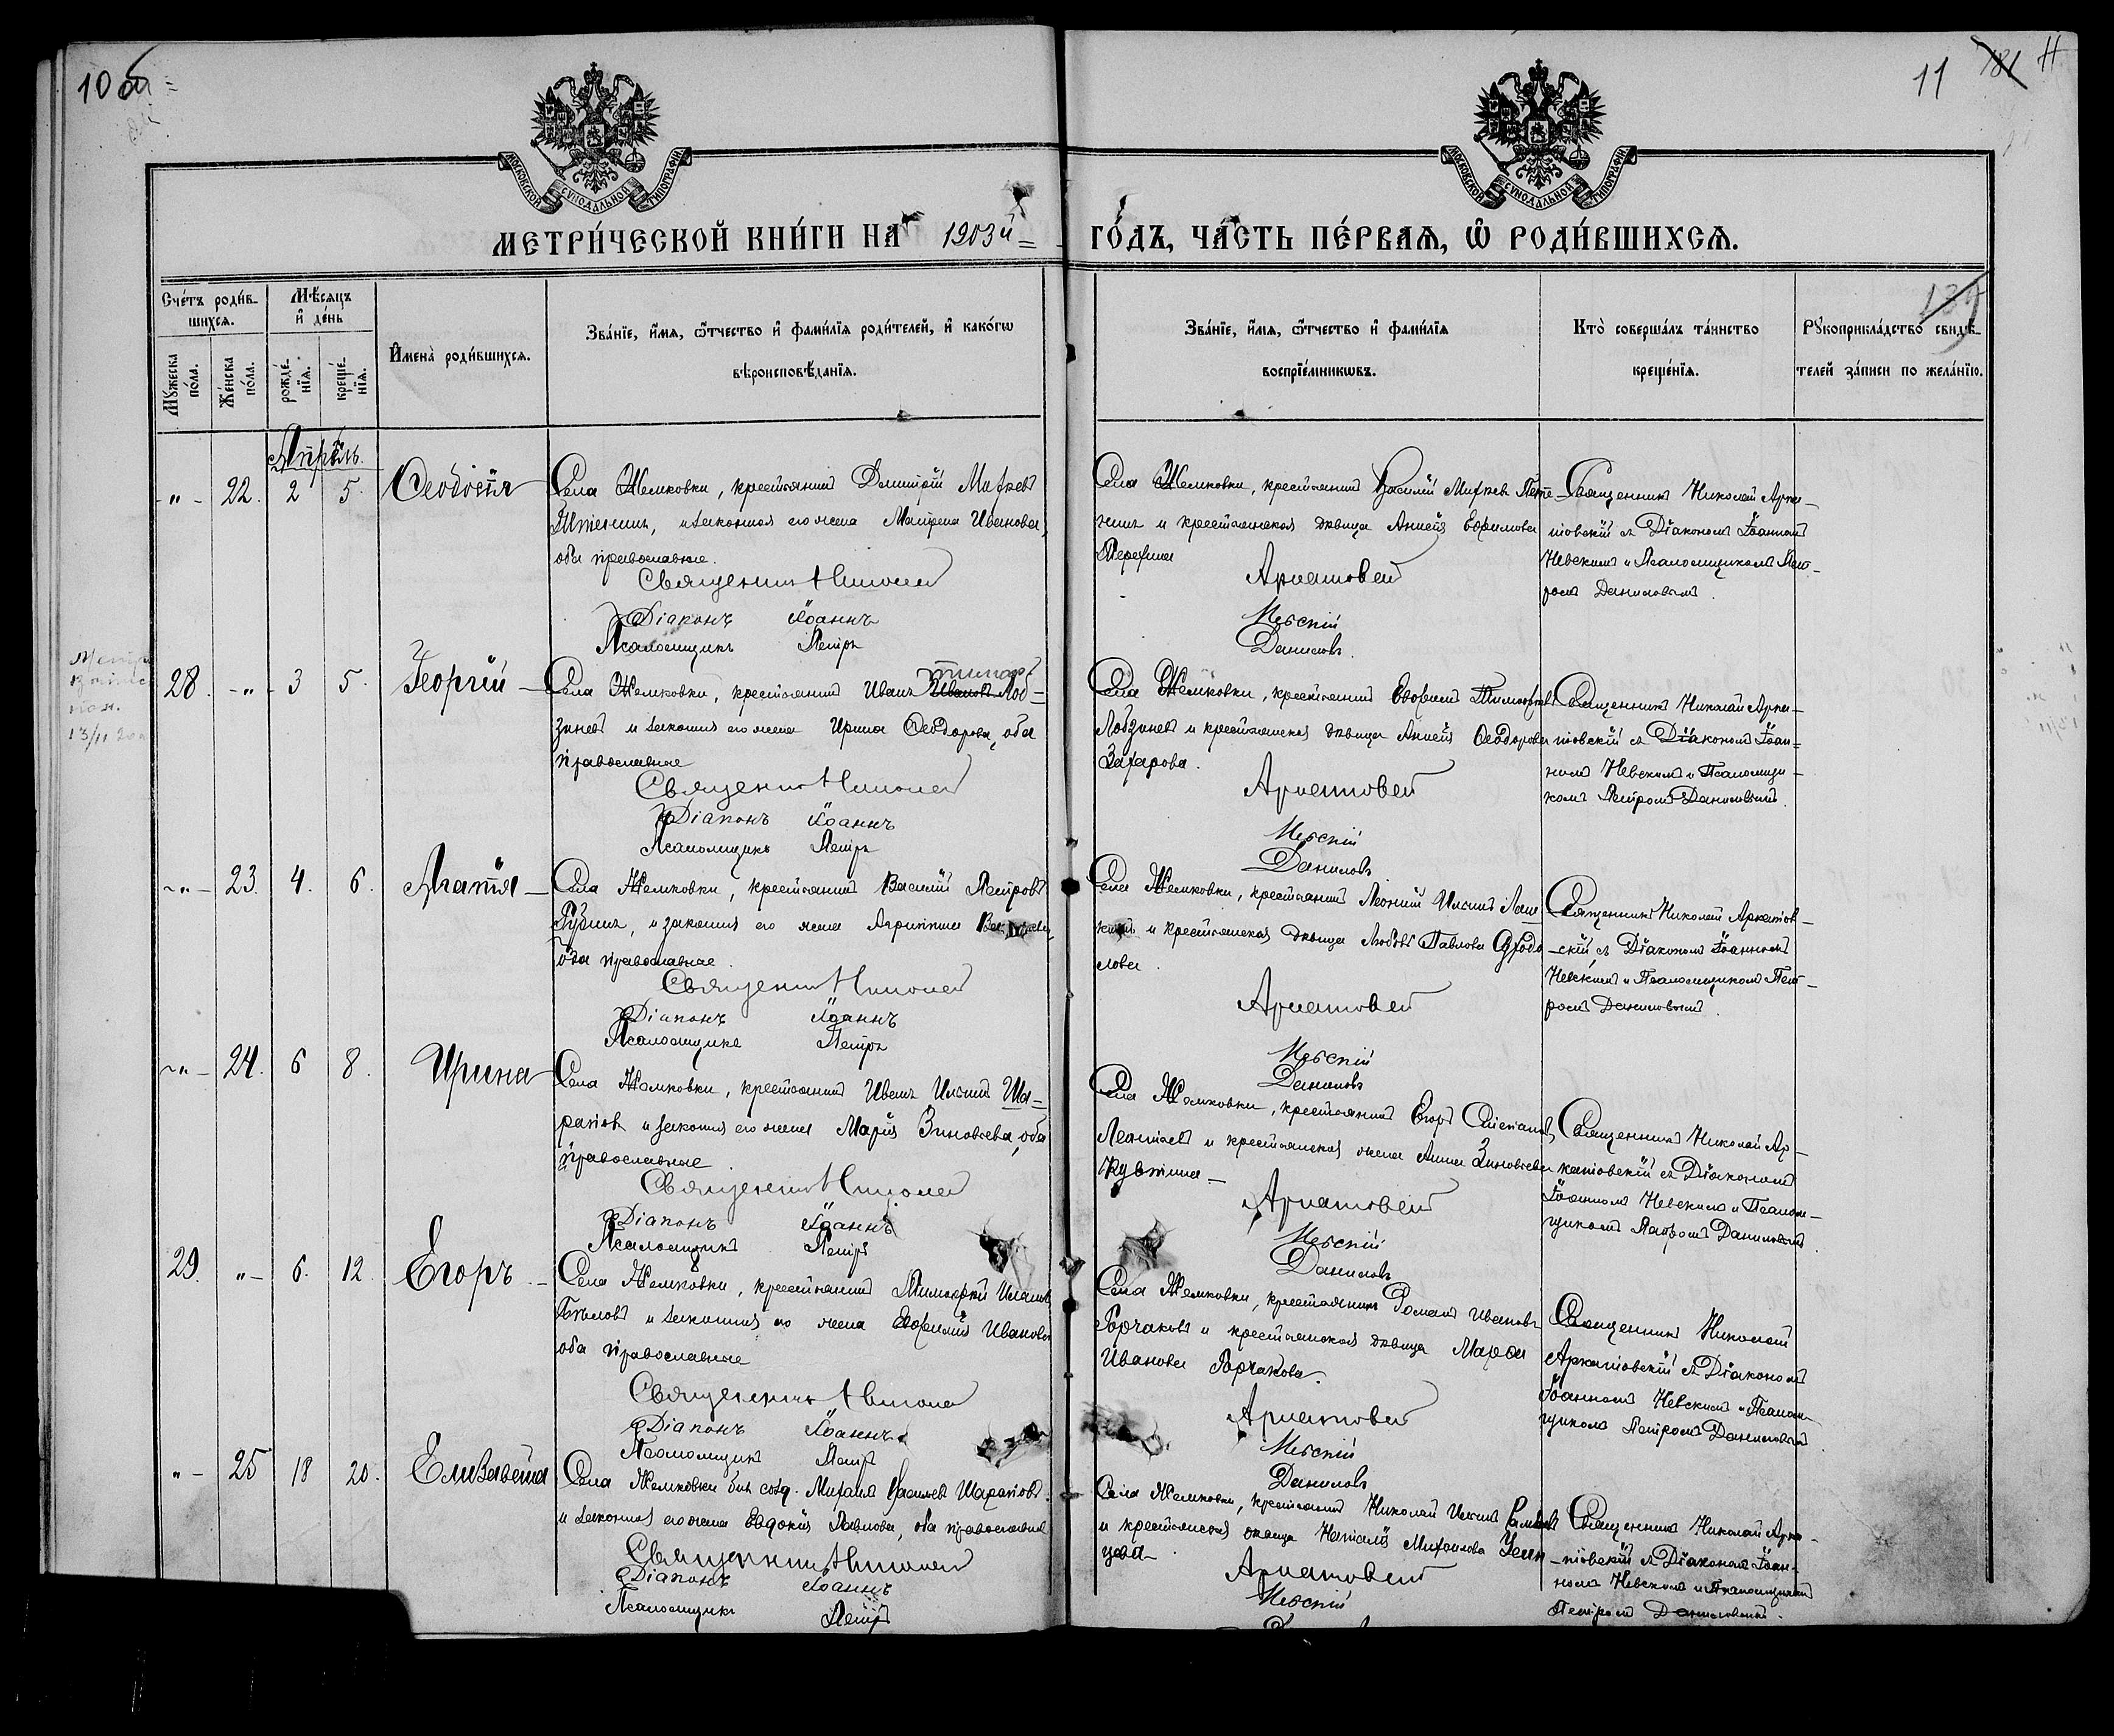 10 об
11 181 11
МОСКОВСКОЙ СУНОДАЛЬНОЙ ТИПОГРАФІИ
МОСКОВСКОЙ СУНОДАЛЬНОЙ ТИПОГРАФІИ
МЕТРИ́ЧЕСКОЙ КНИ́ГИ НА 1903й
ГО́ДЪ, ЧА́СТЬ ПЕ́РВАѦ, Ѽ РОДИ́ВШИХСѦ.
Сче́тъ роди́в-
шихсѧ.
Мѣ́сѧцъ
и҆ де́нь
Мꙋ́жеска
по́ла.
Же́нска
по́ла.
рожде́-
нїѧ.
креще́-
нїѧ.
И҆мена̀ роди́вшихсѧ.
Зва́нїе, и҆́мѧ, ѻ҆́тчество и҆ фами́лїѧ роди́телей, и҆ како́гѡ
вѣроисповѣ́данїѧ.
Зва́нїе, и҆́мѧ, ѻ҆́тчество и҆ фами́лїѧ
воспрїе́мникѡвъ.
Кто̀ соверша́лъ та́инство
креще́нїѧ.
Рꙋкоприкла́дство свидѣ́-
телей за́писи по жела́нїю.
Апрѣль.
-"- 22. 2 5. Ѳеодосія
Села Жемковки, крестьянинъ Димитрій Михѣевъ
и законная его жена Матрена Иванова,
оба православные.
Священникъ Николай
Діаконъ Іоаннъ
Псаломщикъ Петръ
Села Жемковки, крестьянинъ Василій Михѣевъ
и крестьянская дѣвица Анисія Евфимова
Аркатовскій
Невскій
Даниловъ
Священникъ Николай Арка-
товскій съ Діакономъ Іоанномъ
Невскимъ и Псаломщикомъ Пет-
ромъ Даниловымъ.
28. -"- 3 5. Георгій
Села Жемковки, крестьянинъ Иванъ Ивановъ Тимоф. Лоб-
зиневъ и законная его жена Ирина Ѳеодорова, оба
православные
Священникъ Николай
Діаконъ Іоаннъ
Псаломщикъ Петръ
Села Жемковки, крестьянинъ Евфимъ Тимофѣевъ
Лобзиневъ и крестьянская дѣвица Анисія Ѳеодорова
Захарова.
Аркатовскій
Невскій
Даниловъ
Священникъ Николай Арка-
товскій съ Діакономъ Іоан-
номъ Невскимъ и Псаломщи-
комъ Петромъ Даниловымъ.
-"- 23. 4. 6. Агапія
Села Жемковки, крестьянинъ Василій Петровъ
и законная его жена Агриппина
оба православные.
Священникъ Николай
Діаконъ Іоаннъ
Псаломщикъ Петръ
Села Жемковки, крестьянинъ Леонтій Ильинъ
и крестьянская дѣвица Любовь Павлова
лова.
Аркатовскій
Невскій
Даниловъ
Священникъ Николай Аркатов-
скій съ Діакономъ Іоанномъ
Невскимъ и Псаломщикомъ Пет-
ромъ Даниловымъ.
-"- 24. 6 8. Ирина
Села Жемковки, крестьянинъ Иванъ Ильинъ Ша-
раповъ и законная его жена Марія Зиновьева, оба
православные.
Священникъ Николай
Діаконъ Іоаннъ
Псаломщикъ Петръ
Села Жемковки, крестьянинъ Егоръ Степановъ
Леонтьевъ и крестьянская жена Анна Зиновьева
Аркатовскій
Невскій
Даниловъ
Священникъ Николай Ар-
катовскій съ Діакономъ
Іоанномъ Невскимъ и Псалом-
щикомъ Петромъ Даниловымъ.
29. "- 6. 12. Егоръ
Села Жемковки, крестьянинъ Тимофей
и законная его жена Евфимія Иванова
оба православные
Священникъ Николай
Діаконъ Іоаннъ
Псаломщикъ Петръ
Села Жемковки, крестьянинъ Романъ Ивановъ
Горчаковъ и крестьянская дѣвица Марѳа
Иванова Горчакова.
Аркатовскій
Невскій
Даниловъ
Священникъ Николай
Аркатовскій съ Діакономъ
Іоанномъ Невскимъ и Псалом-
щикомъ Петромъ Даниловымъ.
"- 25 18 20. Елизавета
Села Жемковки Михаилъ Васильевъ Шараповъ
и законная его жена Евдокія Павлова, оба православные
Священникъ Николай
Діаконъ Іоаннъ
Псаломщикъ Петръ
Села Жемковки, крестьянинъ Николай Ильинъ
и крестьянская дѣвица Наталія Михаилова
Аркатовскій
Невскій
Священникъ Николай Арка-
товскій съ Діакономъ Іоан-
номъ Невскимъ и Псаломщикомъ
Петромъ Даниловымъ.